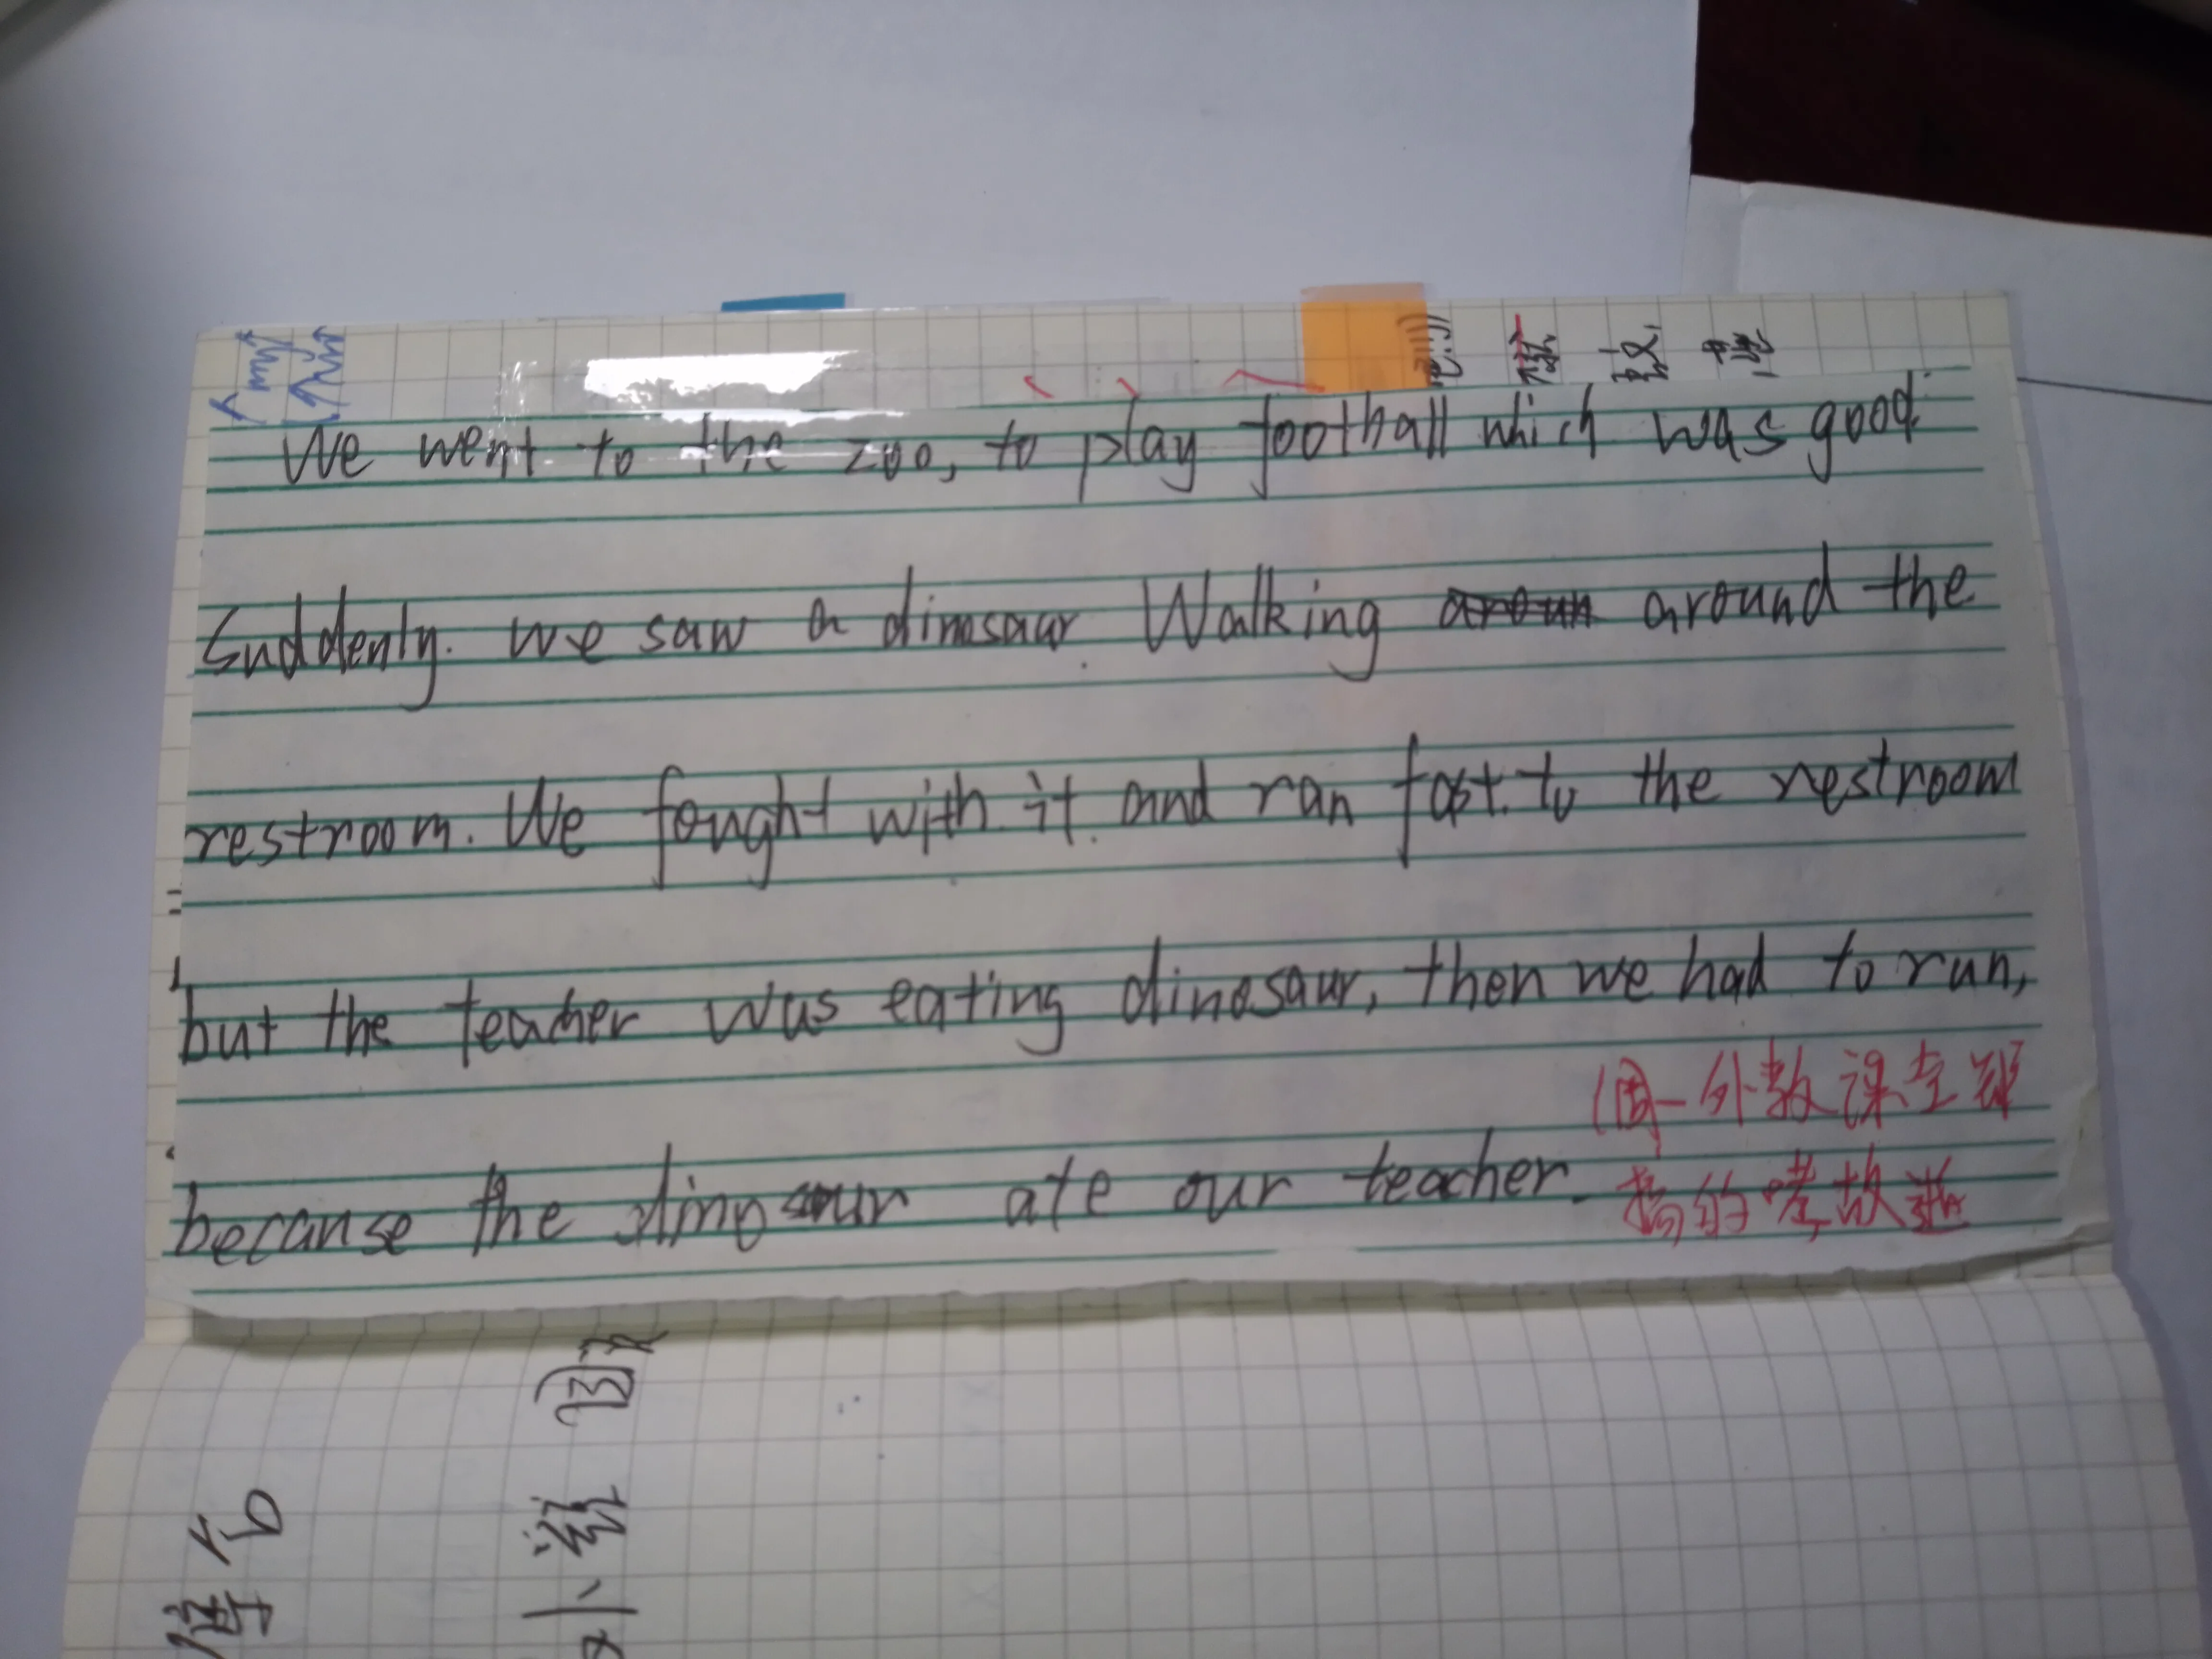 We went to the zoo, to play football which was good.
Suddenly. we saw a dinosaur. Walking aroun around the
restroom. We fought with it. and ran fast. to the restroom
but the teacher was eating dinosaur, then we had to run,
(周一外教课全班
搞的考故
because the dinosaur ate our teacher.